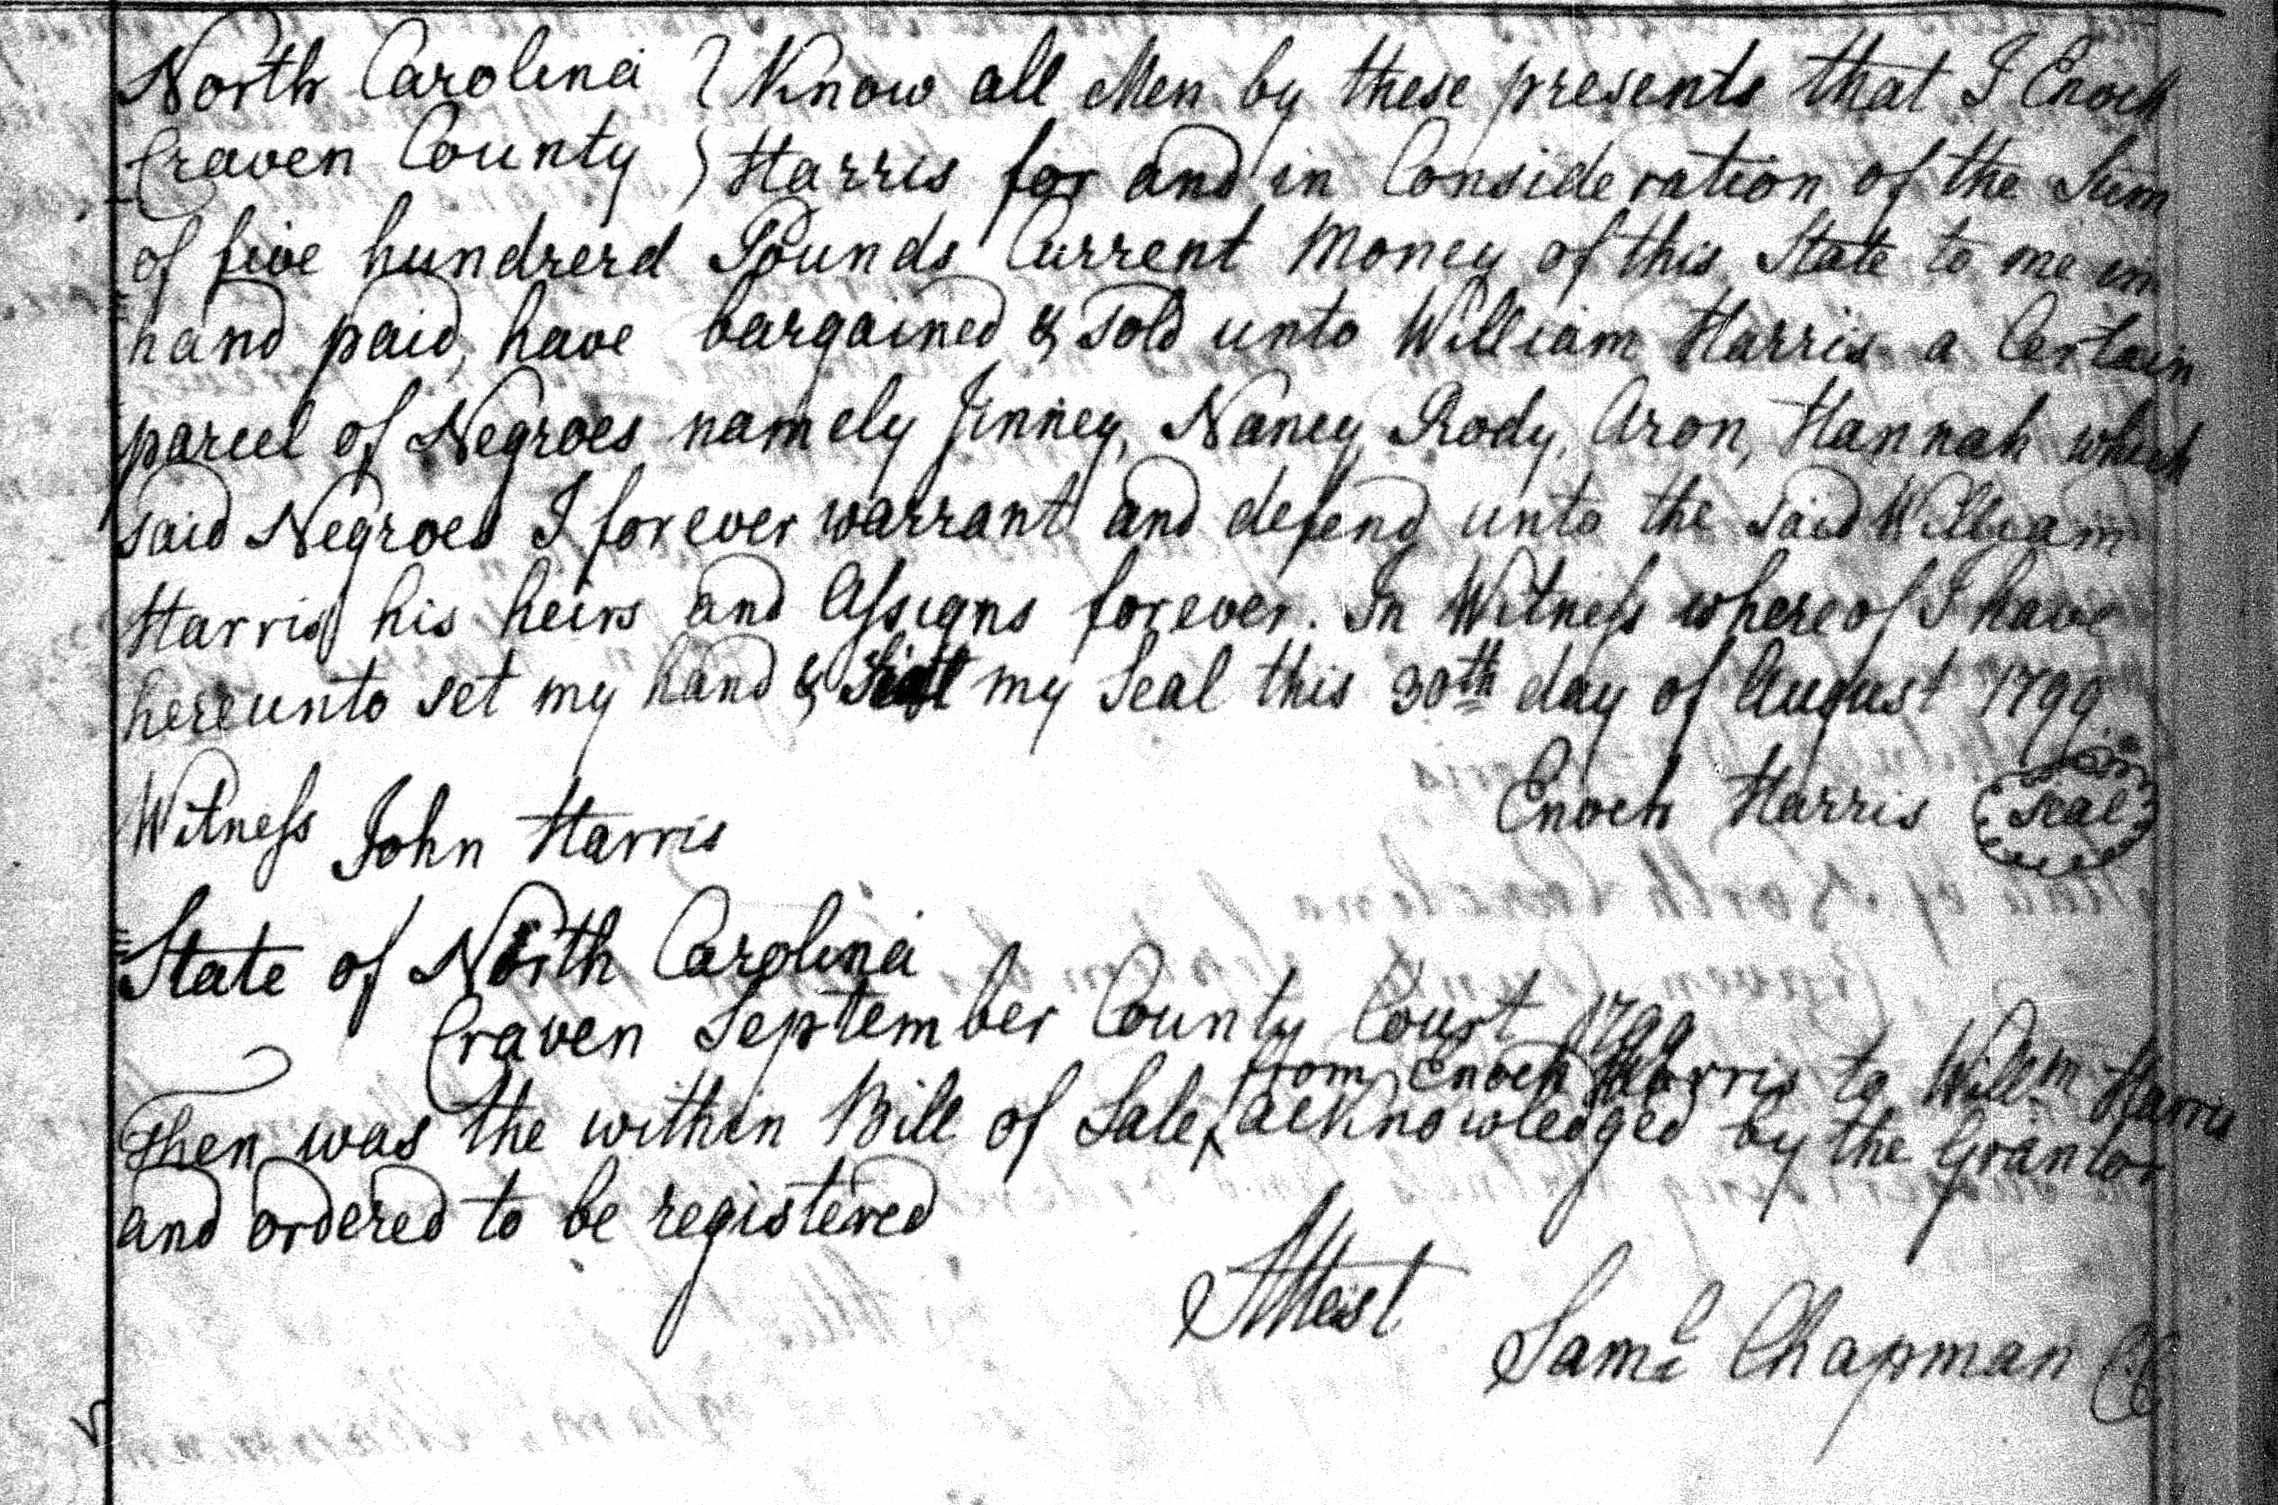 North Carolina } Know all Men by these presents that I Enoch
Craven County } Harris for and in Consideration of the Sum
of five hundrerd Pounds Current Money of this State to me in
hand paid, have bargained & sold unto William Harris a Certain
parcel of Negroes namely Jinney, Nancy Rody, Aron, Hannah which
said Negroes I forever warrant and defend unto the said William
Harris his heirs and Assigns forever. In Witness whereof I have
hereunto set my hand & my Seal this 30th day of August 1799.
Enoch Harris Seal
Witness John Harris
State of North Carolina
Craven September County Court 1799
from Enoch Harris to Willm Harris
Then was the within Bill of Sale ^ acknowledged by the Grantor
and ordered to be registered
Attest
Saml Chapman